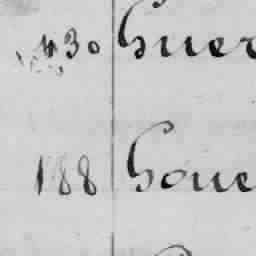 430 Guer
188 Goue